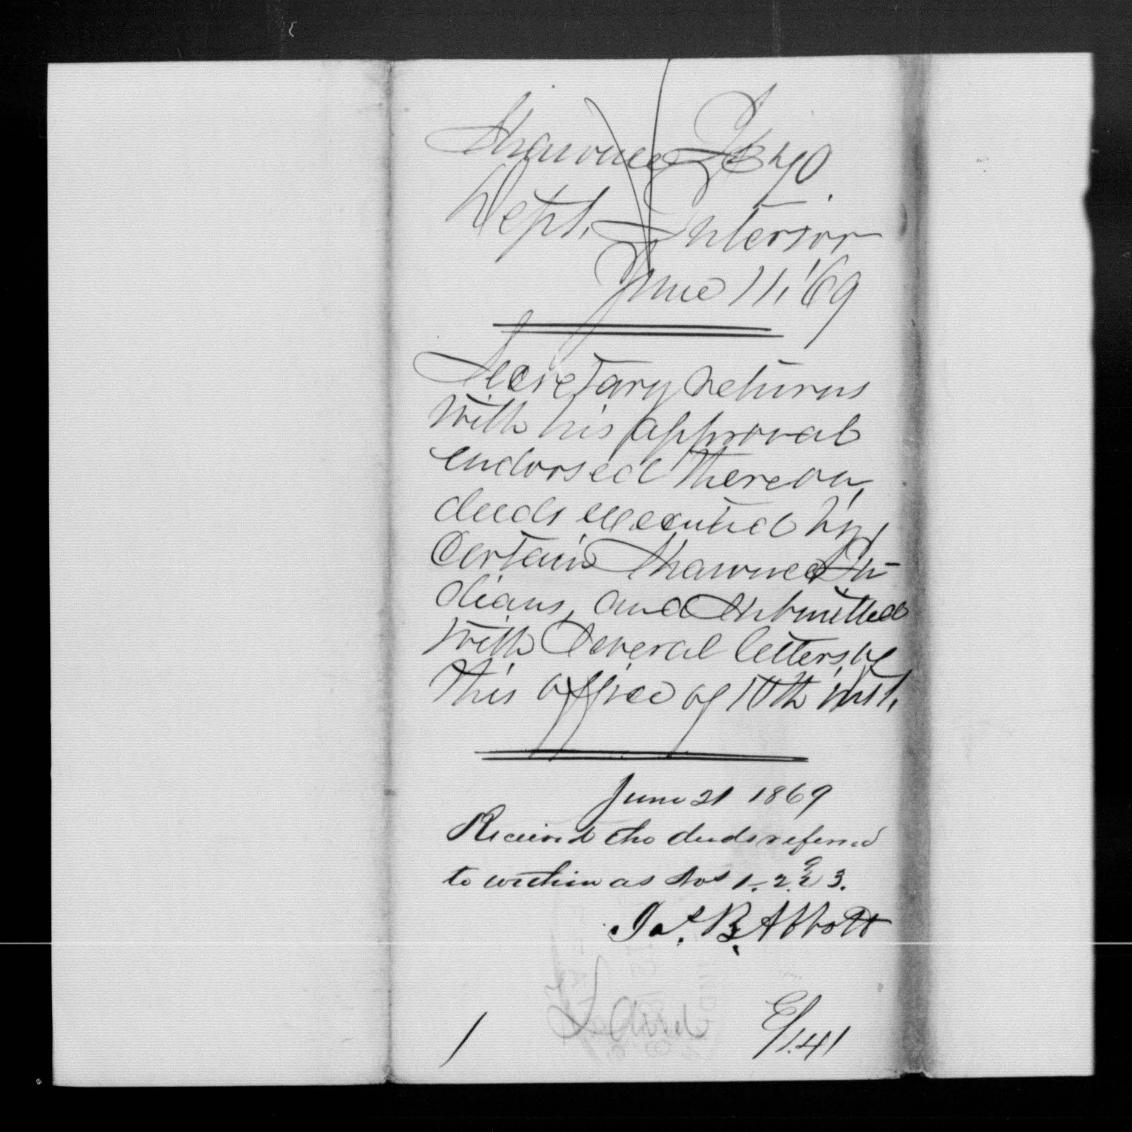 Shawnee I 340
Dept. Interior
June 11, '69
Secretary returns
with his approval
endorsed thereon,
deeds executed by
certain Shawnee In-
dians, and submitted
with several letters of
this office of 10th inst.
June 21 1869
Received the deeds referred
to within as Nos 1. 2. & 3.
Jas. B. Abbott
Land
/
E/141